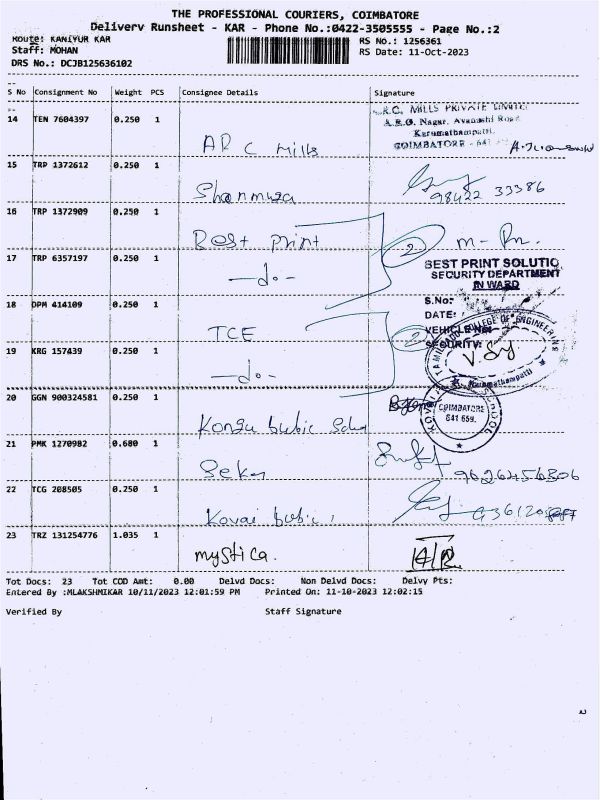 THE PROFESSIONAL COURIERS, COIMBATORE
Delivery Runsheet - KAR - Phone No.:0422-3505555 - Page No.:2
Route: KANIYUR KAR
RS No.: 1256361
Staff: MOHAN
RS Date: 11-Oct-2023
DRS No.: DCJB125636102
S No Consignment No Weight PCS Consignee Details Signature
14 TEN 7604397 0.250 1 AR C Mills
MILLS PRIVATE LIMITED
Nagar, Avanashi Road
Karumathampatti,
COIMBATORE - 641
15 TRP 1372612 0.250 1 Shanmuga 98422 33386
16 TRP 1372909 0.250 1 Best print 2
17 TRP 6357197 0.250 1 -do-
BEST PRINT SOLUTIO
SECURITY DEPARTMENT
IN WARD
S.No:
DATE:
VEHICLE No:
SECURITY:
18 DPM 414109 0.250 1 TCE 2
TAMILNADU COLLEGE OF ENGINEERING
Karumathampatti
19 KRG 157439 0.250 1 -do-
20 GGN 900324581 0.250 1
COIMBATORE
641 659.
21 PMK 1270982 0.680 1 Seker 9626456306
22 TCG 208505 0.250 1 Kovai
23 TRZ 131254776 1.035 1 mystica.
Tot Docs: 23 Tot COD Amt: 0.00 Delvd Docs: Non Delvd Docs: Delvy Pts:
Entered By :MLAKSHMIKAR 10/11/2023 12:01:59 PM Printed On: 11-10-2023 12:02:15
Verified By Staff Signature